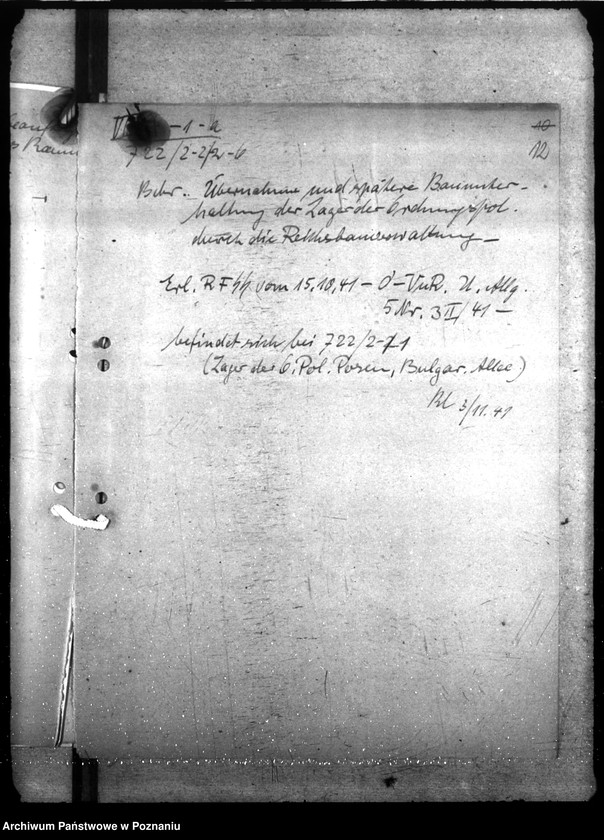 -1-a
10
12
722/2-2/2-6
Betr. Übernahme und spätere Bauunter-
haltung der Lager der Ordnungspol.
durch die Reichsbauverwaltung_
Erl. RFSS vom 15.10.41 - O-VuR. U. Allg.
5 Nr. 3II/41 -
befindet sich bei 722/2-1
(Lager der O. Pol. Posen, Bulgar. Allee)
3/11.41
Archiwum Państwowe w Poznaniu